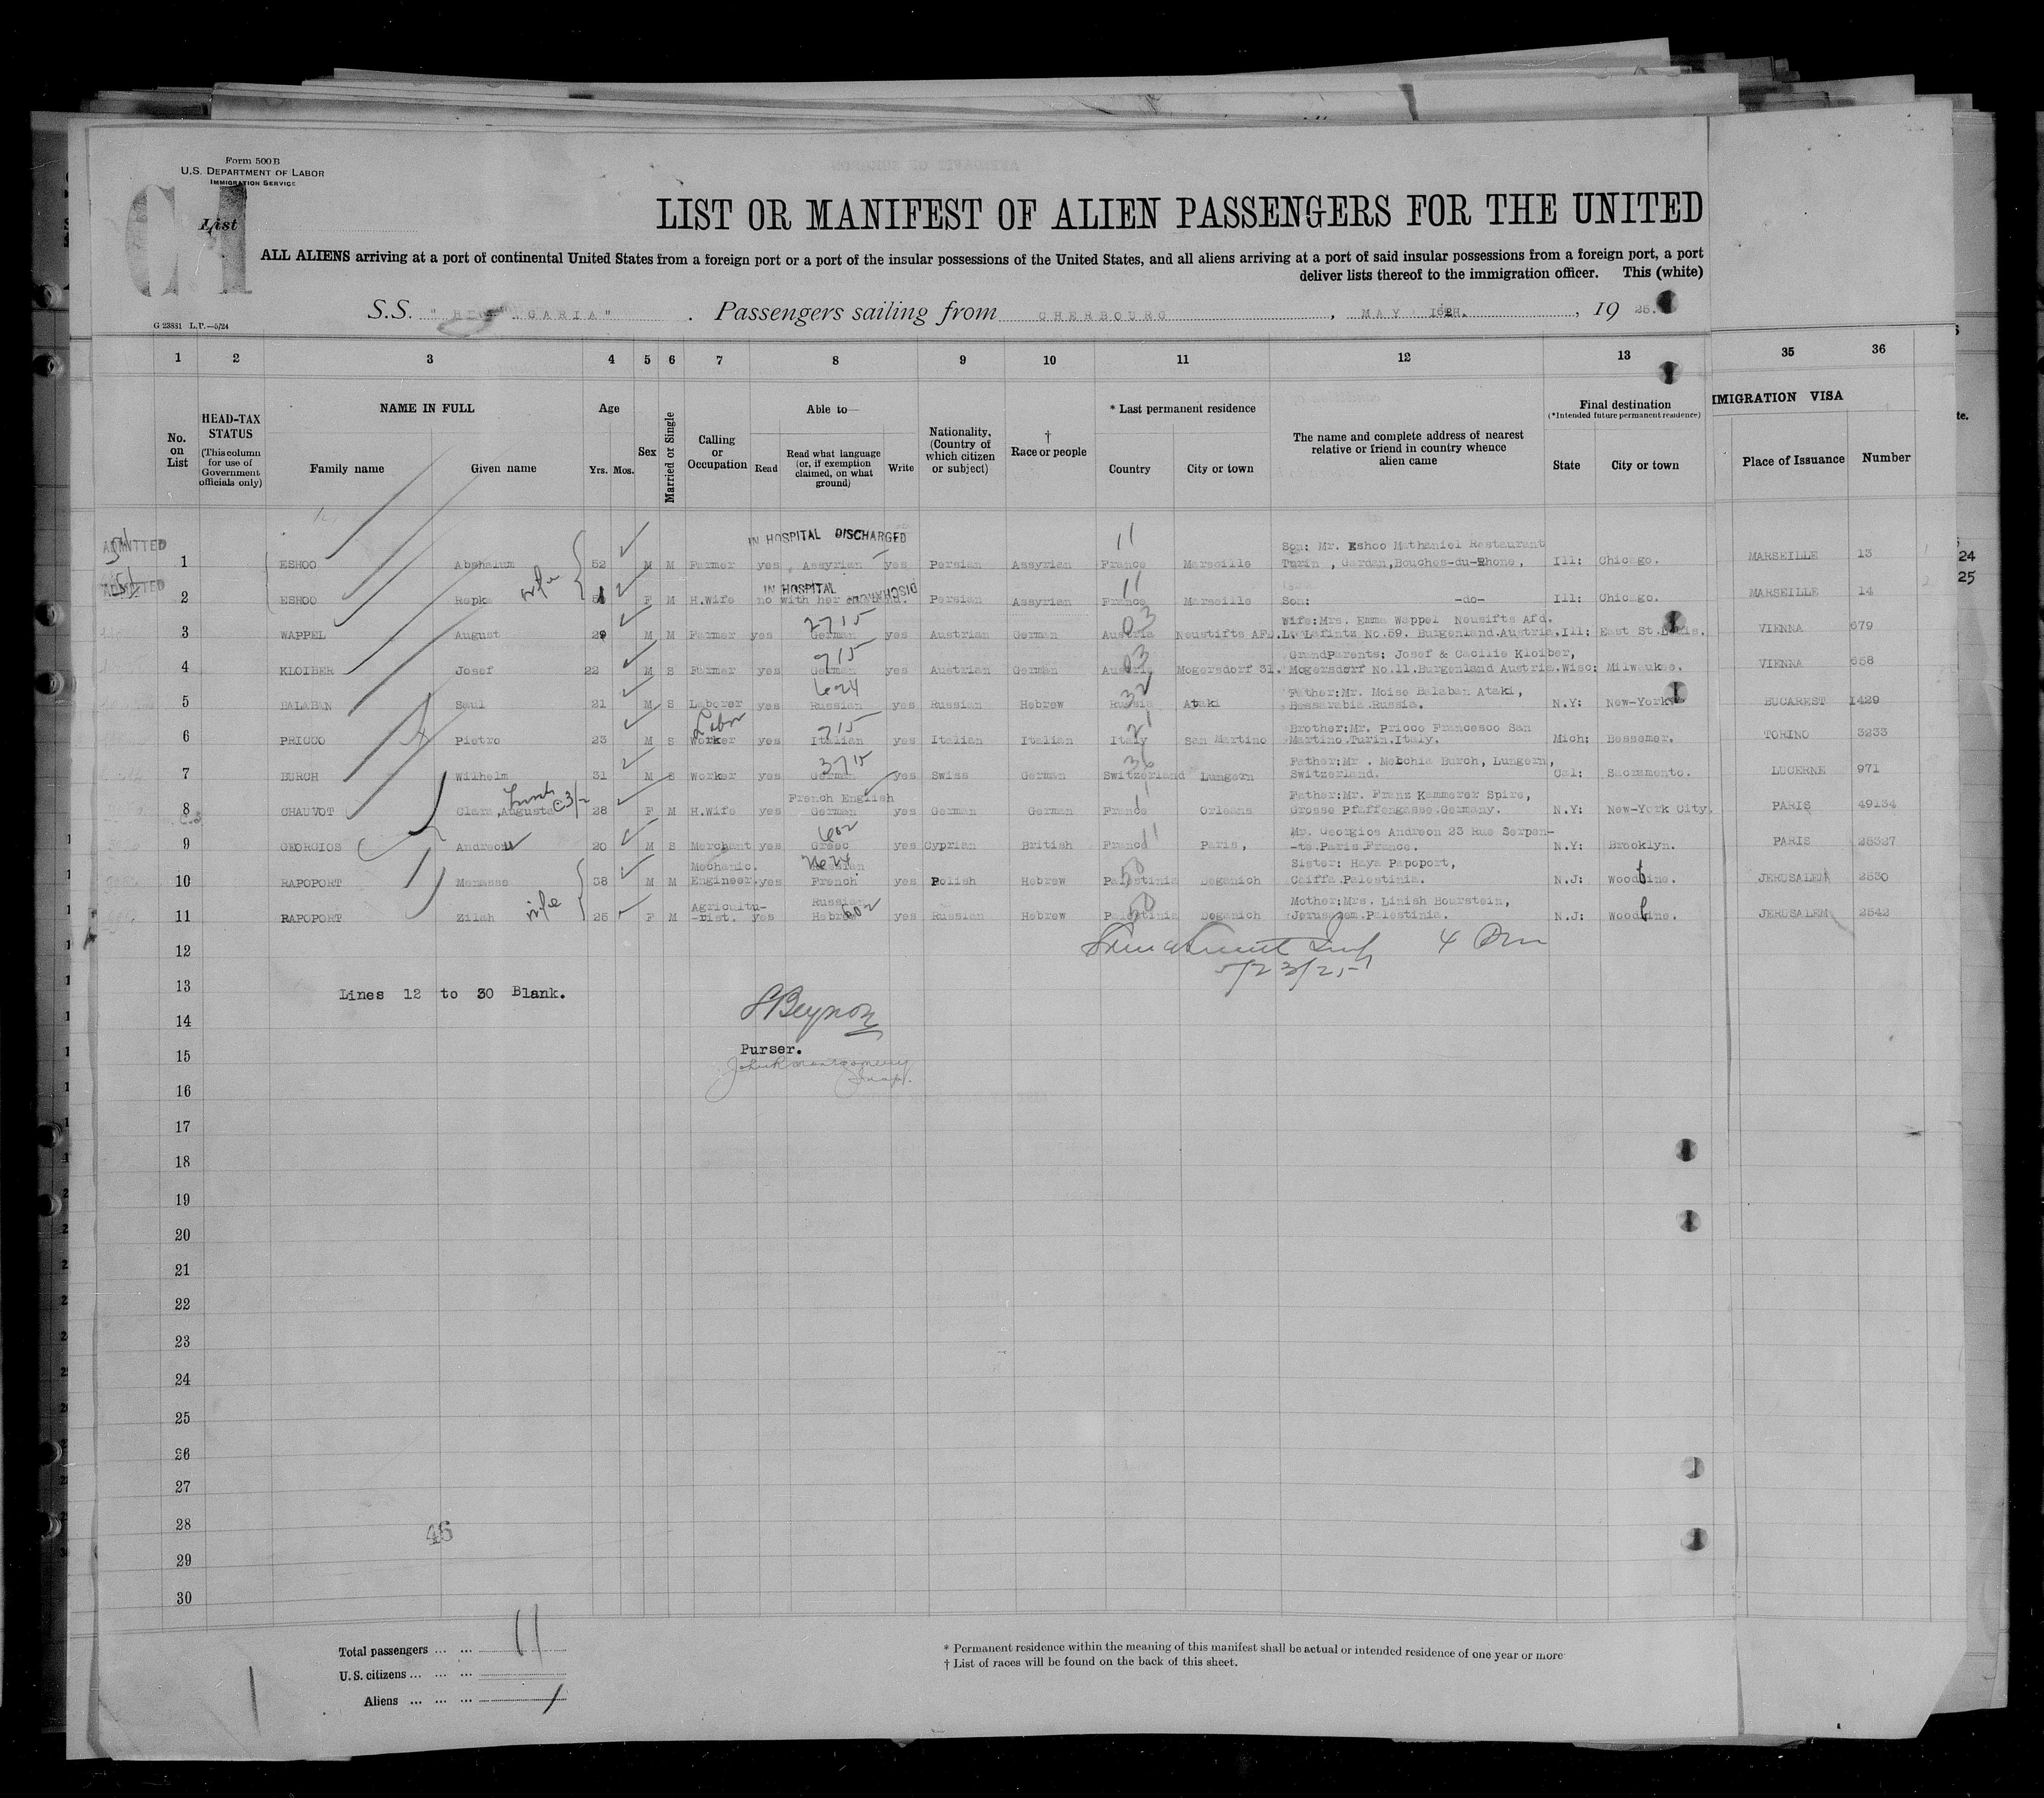 Form 500 B
U.S. DEPARTMENT OF LABOR
IMMIGRATION SERVICE
List
LIST OR MANIFEST OF ALIEN PASSENGERS FOR THE UNITED
ALL ALIENS arriving at a port of continental United States from a foreign port or a port of the insular possessions of the United States, and all aliens arriving at a port of said insular possessions from a foreign port, a port
deliver lists thereof to the immigration officer. This (white)
S.S. Passengers sailing from CHERBOURG, MAY, 1925.
G 23881 L.P.—5/24
1 2 3 4 5 6 7 8 9 10 11 12 13 35 36
No. on List
HEAD-TAX STATUS (This column for use of Government officials only)
NAME IN FULL
Family name Given name
Age
Yrs. Mos.
Sex
Married or Single
Calling or Occupation
Able to—
Read
Read what language (or, if exemption claimed, on what ground)
Write
Nationality, (Country of which citizen or subject)
† Race or people
* Last permanent residence
Country City or town
The name and complete address of nearest relative or friend in country whence alien came
Final destination
(*Intended future permanent residence)
State City or town
IMMIGRATION VISA
Place of Issuance Number
ADMITTED IN HOSPITAL DISCHARGED 11 Son: Mr. Eshoo Mathaniel Restaurant
1 ESHOO Abshalum 52 M M Farmer yes Assyrian yes Persian Assyrian France Marseille Turin, Gardan, Bouches-du-Rhone, Ill: Chicago. MARSEILLE 13 24
ADMITTED wife IN HOSPITAL DISCHARGED 11 25
2 ESHOO Repka F M H.Wife no with her husband. Persian Assyrian France Marseille Son: -do- Ill: Chicago. MARSEILLE 14
2715 03 Wife:Mrs. Emma Wappel Neusifts Afd.
3 WAPPEL August 29 M M Farmer yes German yes Austrian German Austria Neustifts AFD. Lafintz No.59. Burgenland.Austria. Ill: East St.Louis. VIENNA 679
715 03 GrandParents: Josef & Cacilie Kloiber,
4 KLOIBER Josef 22 M S Farmer yes German yes Austrian German Austria Mogersdorf 31. Mogersdorf No.11.Burgenland Austria. Wisc: Milwaukee. VIENNA 658
624 32 Father:Mr. Moise Balaban Ataki,
5 BALABAN Saul 21 M S Laborer yes Russian yes Russian Hebrew Russia Ataki Bessarabia.Russia. N.Y: New-York BUCAREST 1429
Labor 715 21 Brother:Mr. Pricco Francesco San
6 PRICCO Pietro 23 M S Worker yes Italian yes Italian Italian Italy San Martino Martino.Turin.Italy. Mich: Bessemer. TORINO 3233
3715 36 Father:Mr. Melchia Burch, Lungern,
7 BURCH Wilhelm 31 M S Worker yes German yes Swiss German Switzerland Lungern Switzerland. Cal: Sacramento. LUCERNE 971
French English 11 Father:Mr. Franz Kammerer Spire,
8 CHAUVOT Clara,Augusta 28 F M H.Wife yes German German German France Orleans Grosse Pfaffengasse.Germany. N.Y: New-York City. PARIS 49134
602 11 Mr. Georgios Andreon 23 Rue Serpen-
9 GEORGIOS Andreou 20 M S Merchant yes Greec yes Cyprian British France Paris, -te.Paris.France. N.Y: Brooklyn. PARIS 25327
Mechanic. 50 Sister: Haya Papoport,
10 RAPOPORT Menasse 38 M M Engineer. yes French yes Polish Hebrew Palestinia Deganich Caiffa.Palestinia. N.J: Woodbine. JERUSALEM 2530
wife Agricultu- Russian 602 50 Mother:Mrs. Liniah Bourstein,
11 RAPOPORT Zilah 25 F M -rist. yes Hebrew yes Russian Hebrew Palestinia Deganich Jerusalem.Palestinia. N.J: Woodbine. JERUSALEM 2542
12
5/23/25
13 Lines 12 to 30 Blank.
SBeynon
14
Purser.
15
16
17
18
19
20
21
22
23
24
25
26
27
28 46
29
30
Total passengers ... ... 11
U.S. citizens ... ... ...
Aliens ... ... ...
* Permanent residence within the meaning of this manifest shall be actual or intended residence of one year or more
† List of races will be found on the back of this sheet.